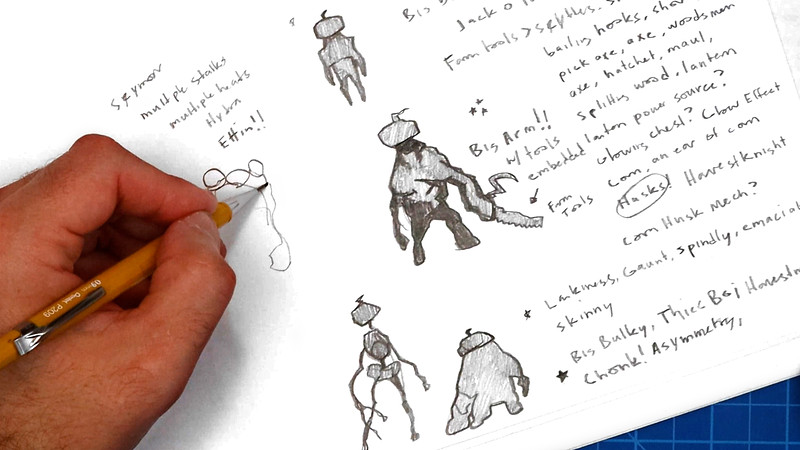 Seymor
multiple stalks
multiple heads
Hydra
Ettin!!
Big
Jack o
Farm tools > scythes, s
bailing hooks, sho
pick axe, axe, woodsmen
axe, hatchet, maul,
splitting wood, lantern
Big Arm!!
w/ tools
embedded lantern power source?
Glowing chest? Glow Effect
Corn, an ear of corn
Farm
Tools
Husks! Harvest Knight
Corn Husk Mech?
Lankiness, Gaunt, Spindly, emaciat
Skinny
Big Bulky, Thicc Boi Harvestm
Chonk! Asymmetry,
0.9mm Pentel P209